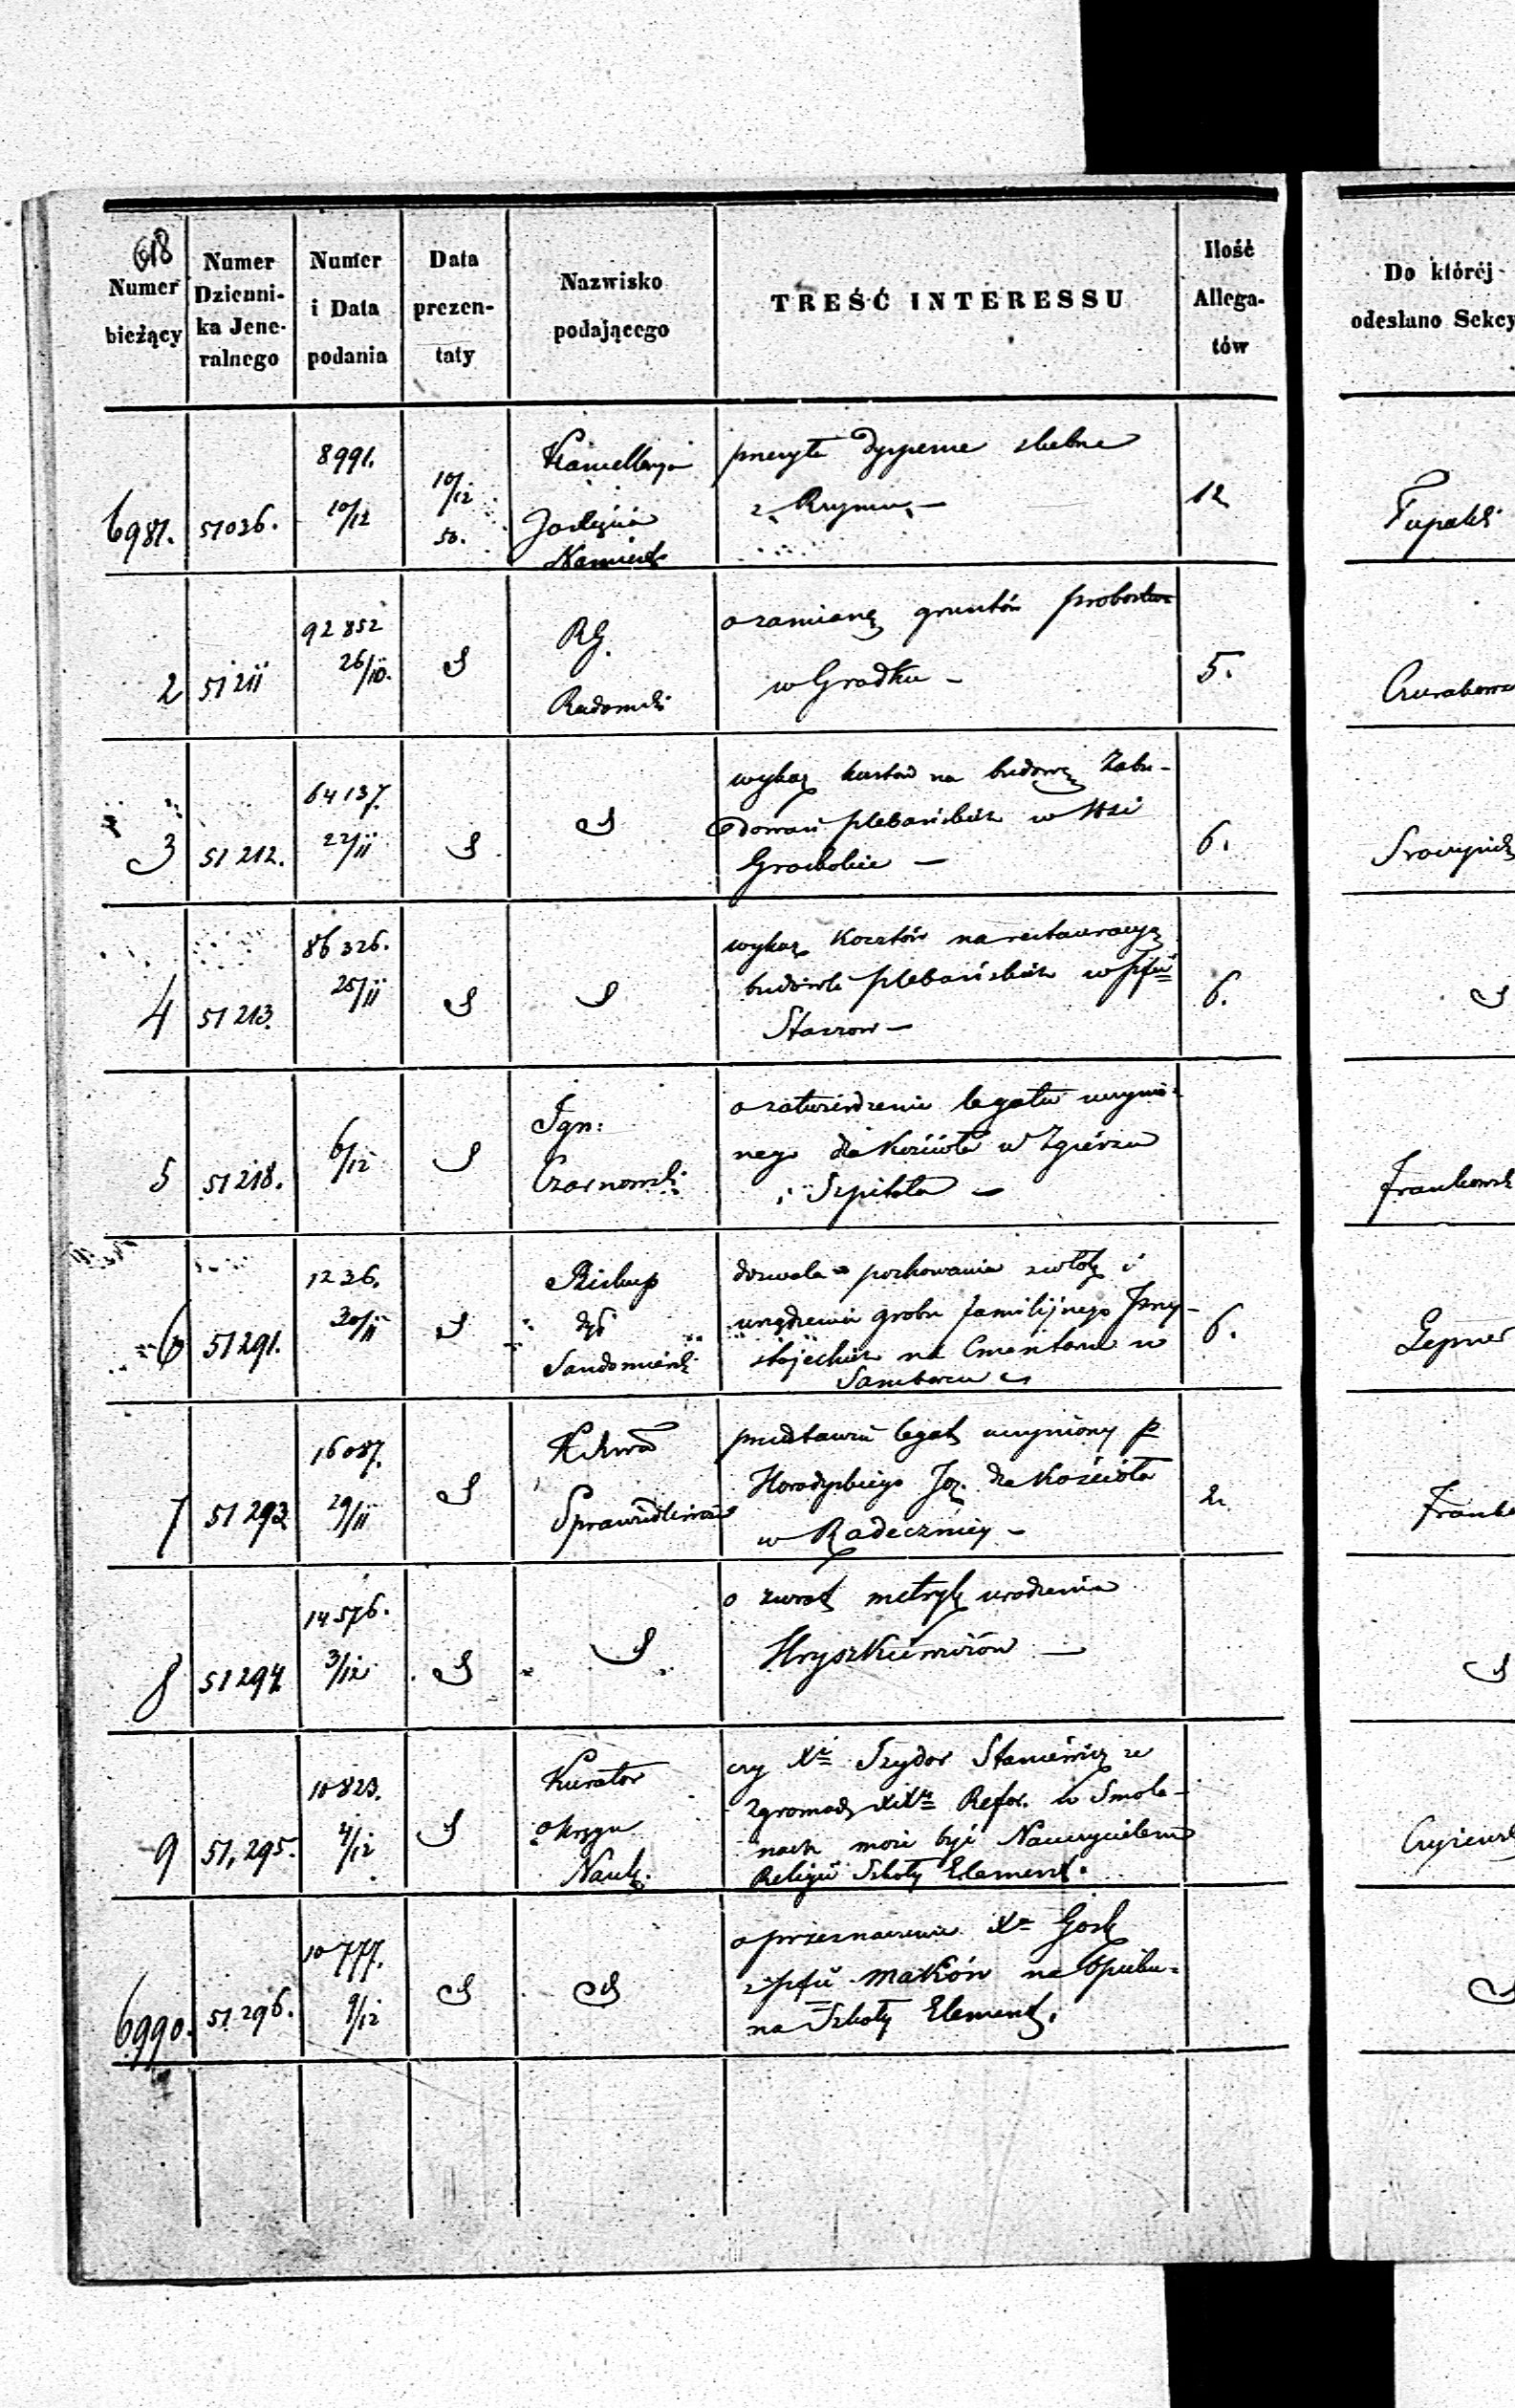 618
Numer bieżący
Numer Dzienni-
ka Jene-
ralnego
Numer
i Data
podania
Data
prezen-
taty
Nazwisko
podającego
TREŚĆ INTERESSU
Ilość
Allega-
tów
Do któréj
odesłano Sekcy
6981. 51026. 8991. 10/12 10/12 50.
Kancellarya
przesyła dyspense
z Rzymu, —
12
2 51211 92852 26/10. S
RG.
Radomski
o zamianę gruntów probostwa
w Gradku —
5.
3 51212. 64137. 22/11 S S
wykaz kosztów na budowę Zabu-
dowań plebańskich w Wsi
Grocholice —
6.
4 51213. 86326. 25/11 S S
wykaz kosztów na restauracyą
budowli plebańskich w pfii
Staszow —
6.
S
5 51218. 6/12 S
Ign:
Czarnowski
o zatwierdzenie legatu uczynio-
nego dla kościoła w Zgierzu
i Szpitala —
Frankowsk
6 51291. 1236. 30/11 S
Biskup
dyś
Sandomierski
dozwala pochowania zwłok i
urządzenia grobu familijnego
na Cmentarzu w
Samborcu
6.
Lepner
7 51293 16087. 29/11 S
K. Rząd.
Sprawiedliwości
przedstawia legat uczyniony p
Horodyskiego Joz. dla kościoła
w Radecznicy —
2.
8 51294 14576. 3/12 S S
o zwrot metryk urodzenia
Hryszkiewiczów —
S
9 51,295. 10823. 4/12 S
Kurator
okręgu
Nauk.
czy Xdz Izydor Staniewicz ze
Zgromadz XiXy Refor. w Smole-
nach może być Nauczycielem
Religii Szkoły Element.
6990. 51296. 10777. 9/12 S S
o przeznaczenie Xa Gosk
z pfii Maków na Opieku-
na Szkoły Element.
S